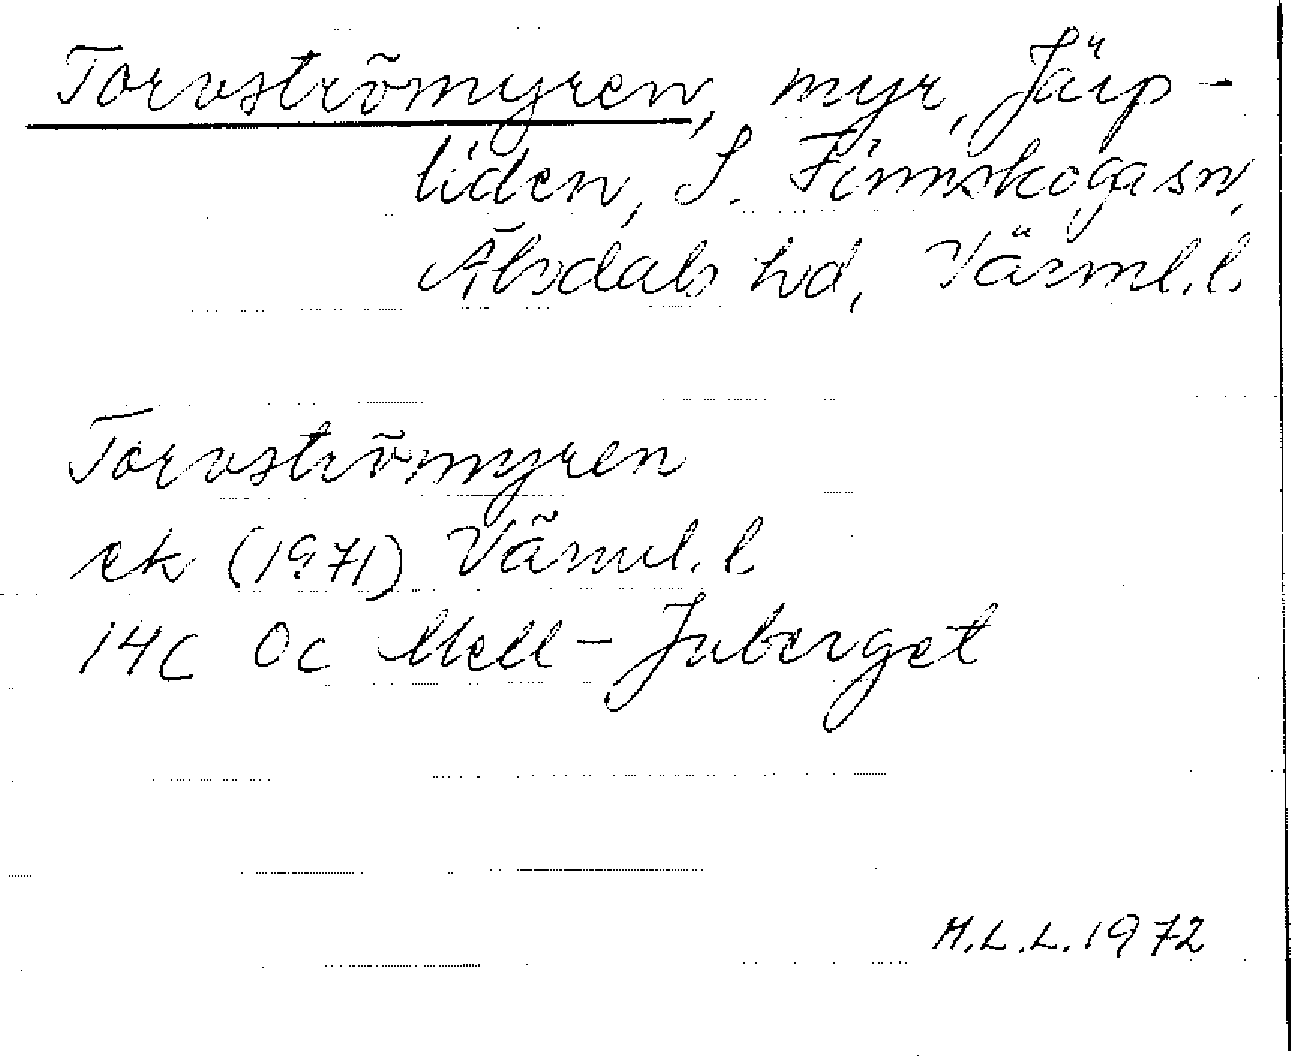 Torvströmyren, myr, Järp-
liden, S. Finnskoga sn,
Älvdals hd, Värml.l.
Torvströmyren
ek (1971) Värml. l
14C 0c Mell-Juberget
M.L.L. 1972